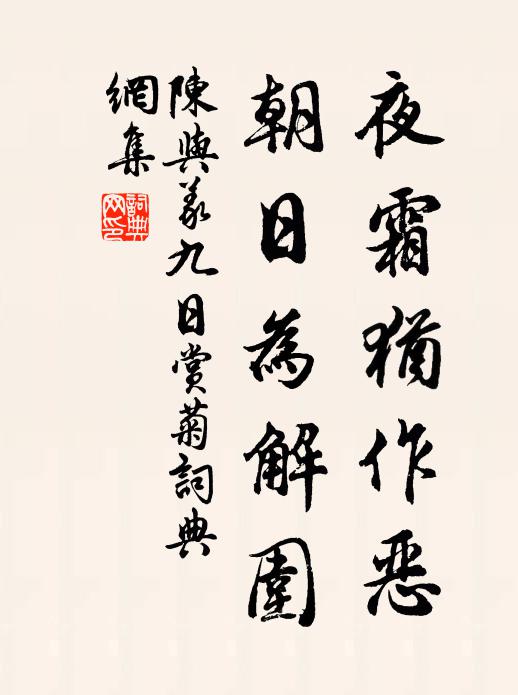 夜霜猶作惡
朝日為解圍
陳與義九日賞菊詞典
網集
詞典
网印